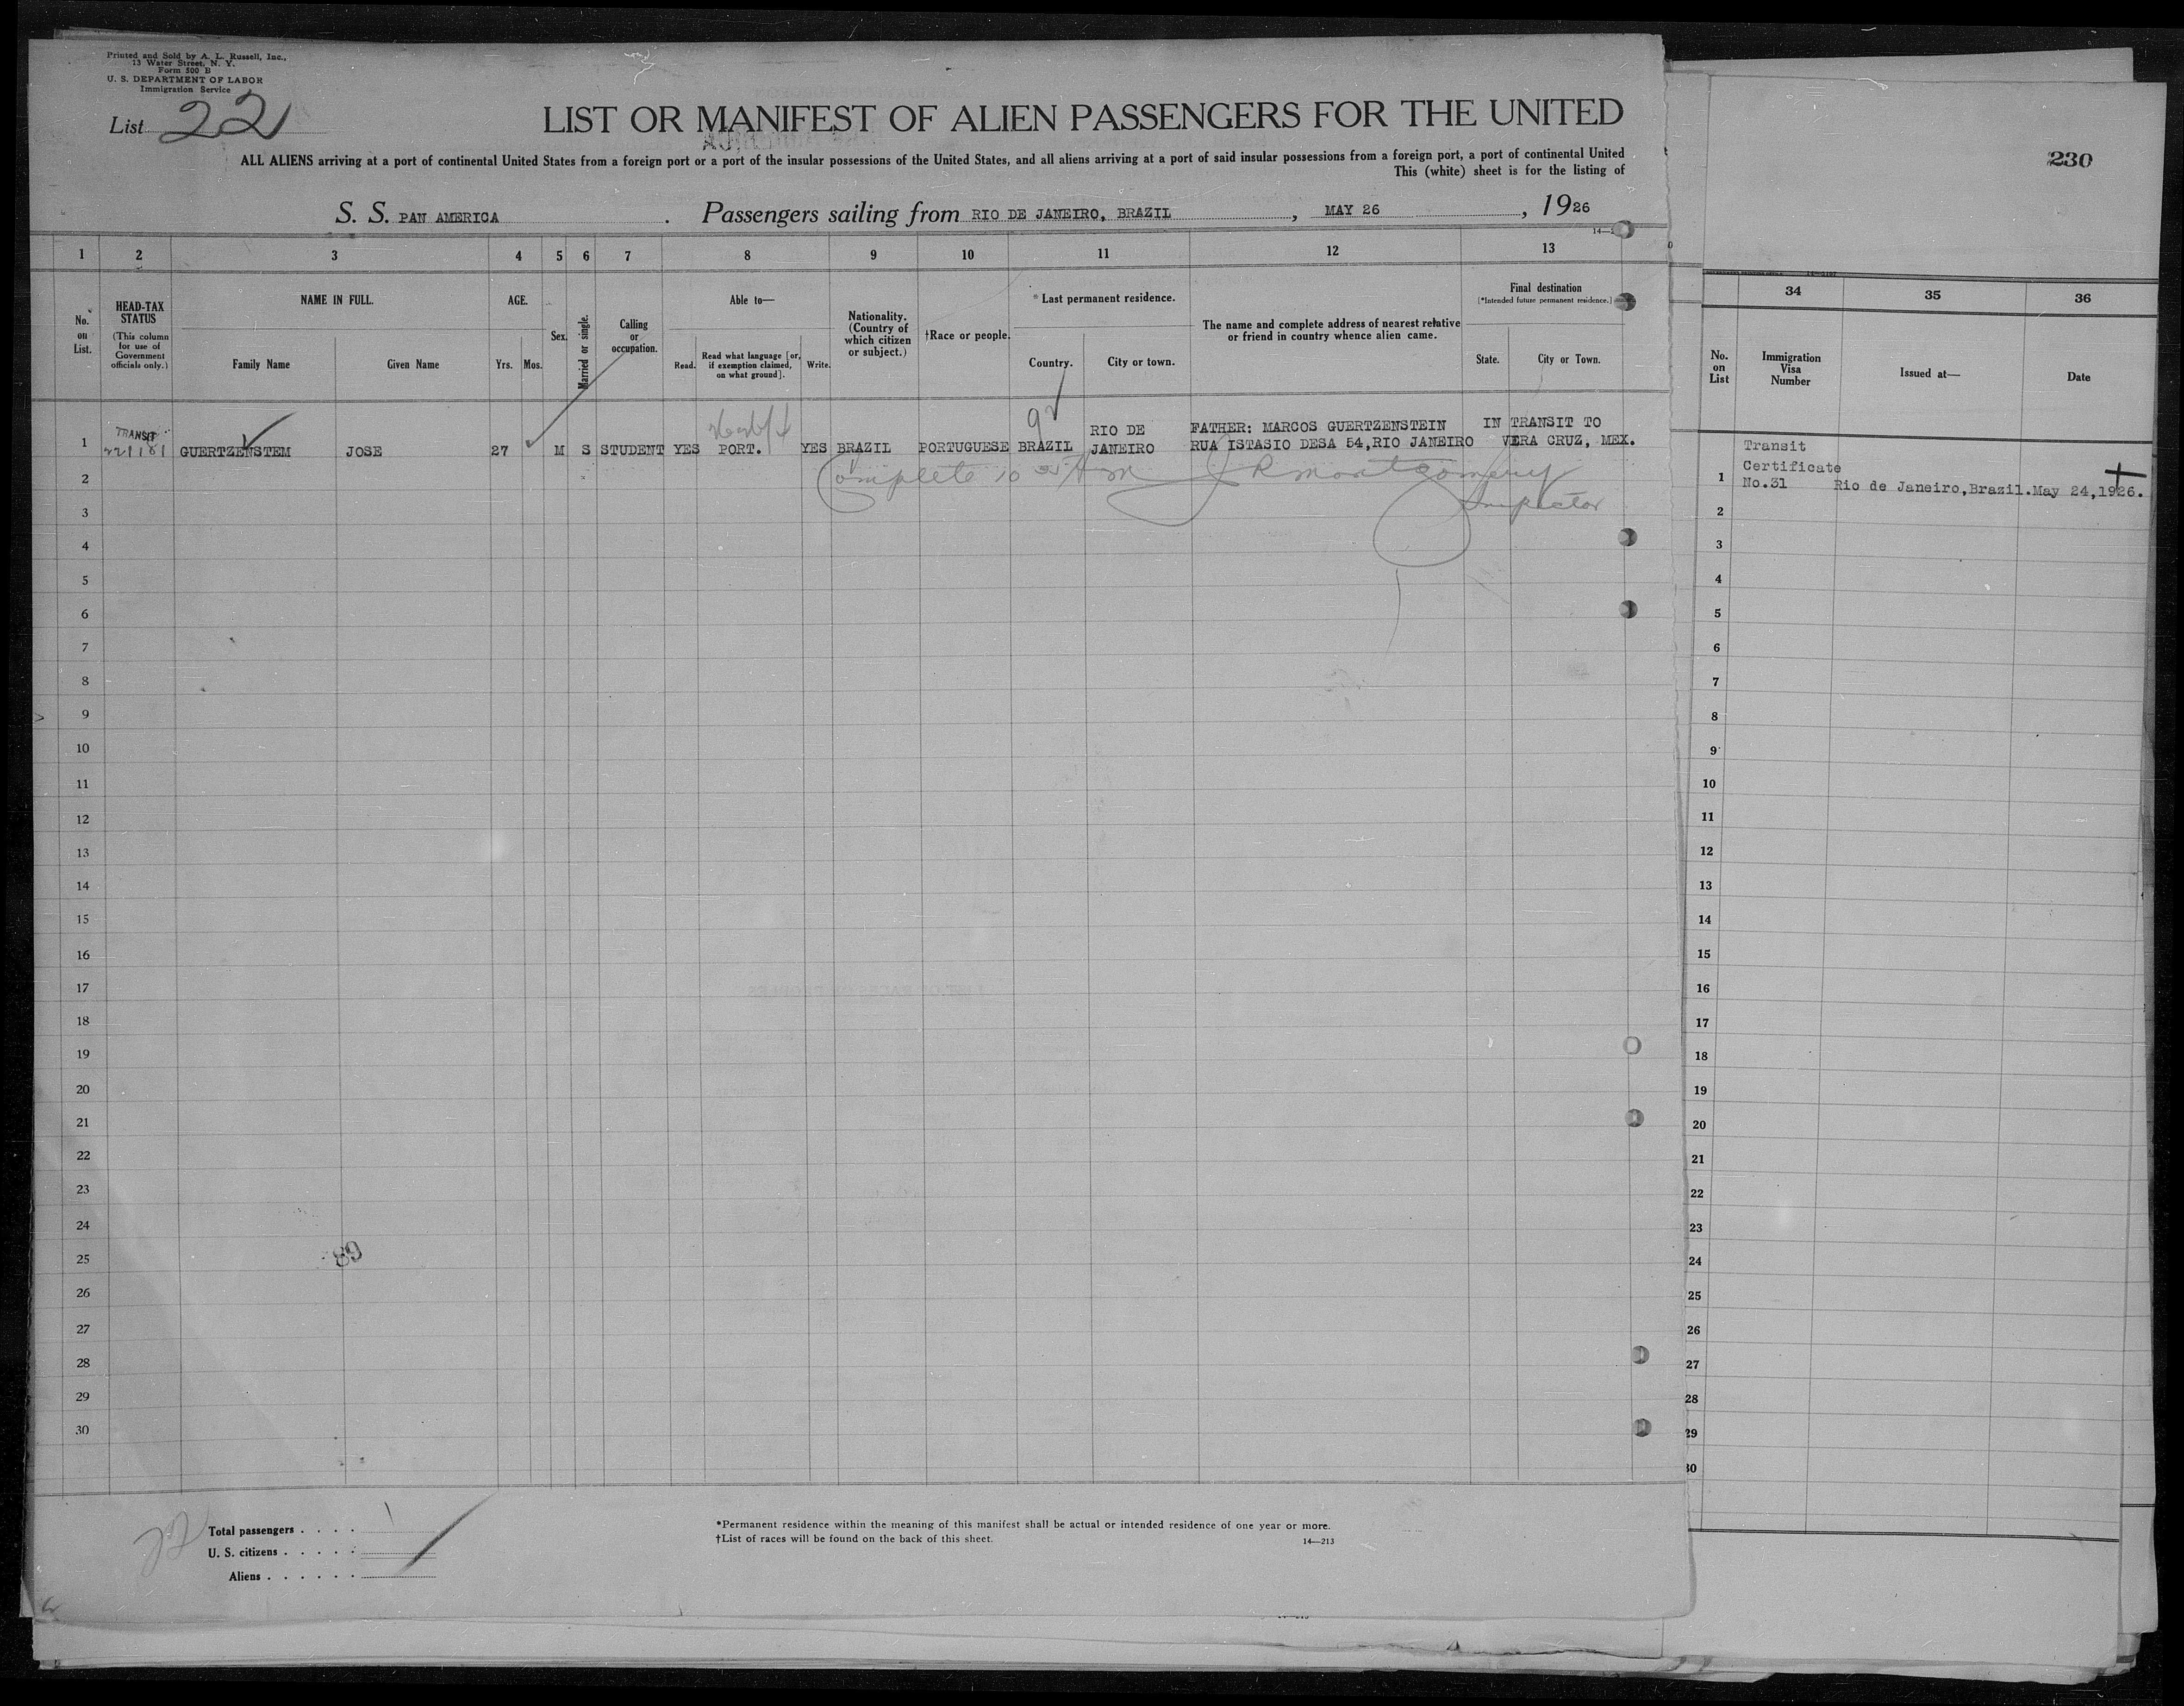 Printed and Sold by A. L. Russell, Inc.,
13 Water Street, N. Y.
Form 500 B
U. S. DEPARTMENT OF LABOR
Immigration Service
List 22
LIST OR MANIFEST OF ALIEN PASSENGERS FOR THE UNITED
ALL ALIENS arriving at a port of continental United States from a foreign port or a port of the insular possessions of the United States, and all aliens arriving at a port of said insular possessions from a foreign port, a port of continental United
This (white) sheet is for the listing of
230
S. S. PAN AMERICA . Passengers sailing from RIO DE JANEIRO, BRAZIL , MAY 26 , 1926
1 2 3 4 5 6 7 8 9 10 11 12 13
No. on List.
HEAD-TAX STATUS
(This column for use of Government officials only.)
NAME IN FULL.
Family Name
Given Name
AGE.
Yrs. Mos.
Sex.
Married or single.
Calling or occupation.
Able to—
Read.
Read what language [or, if exemption claimed, on what ground].
Write.
Nationality. (Country of which citizen or subject.)
†Race or people.
*Last permanent residence.
Country.
City or town.
The name and complete address of nearest relative or friend in country whence alien came.
Final destination
(*Intended future permanent residence.)
State.
City or Town.
34 35 36
No. on List
Immigration Visa Number
Issued at—
Date
1 TRANSIT GUERTZENSTEM JOSE 27 M S STUDENT YES PORT. YES BRAZIL PORTUGUESE BRAZIL RIO DE JANEIRO FATHER: MARCOS GUERTZENSTEIN RUA ISTASIO DESA 54,RIO JANEIRO IN TRANSIT TO VERA CRUZ, MEX.
Complete 10 AM J R Montgomery
Inspector
1 Transit Certificate No.31 Rio de Janeiro,Brazil. May 24,1926.
2
3
4
5
6
7
8
9
10
11
12
13
14
15
16
17
18
19
20
21
22
23
24
25
26
27
28
29
30
2
3
4
5
6
7
8
9
10
11
12
13
14
15
16
17
18
19
20
21
22
23
24
25
26
27
28
29
30
89
22
Total passengers . . . . 1
U. S. citizens . . . . .
Aliens . . . . . .
*Permanent residence within the meaning of this manifest shall be actual or intended residence of one year or more.
†List of races will be found on the back of this sheet.
14—213